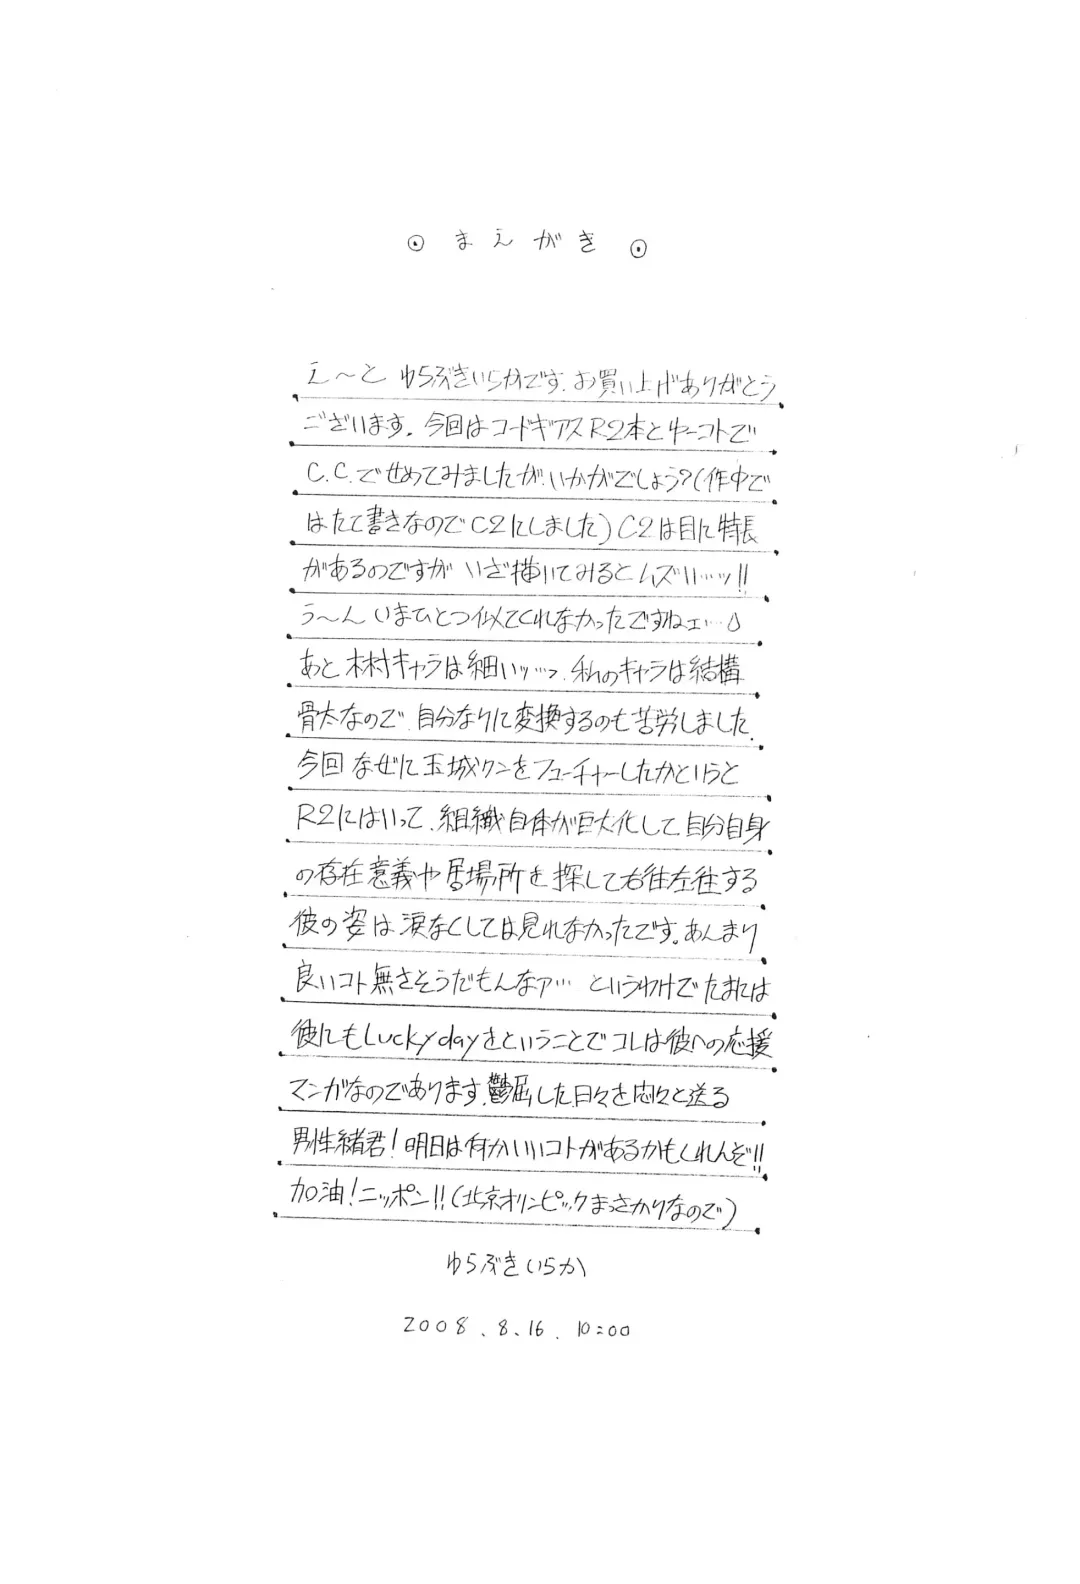 ⊙ まえがき ⊙
え〜と ゆらぶきいらかです. お買い上げありがとう
ございます. 今回はコードギアスR2本とゆーコトで
C.C.でせめてみましたが.いかがでしょう?(作中で
はたて書きなのでC2にしました)C2は目に特長
があるのですが いざ描いてみるとムズい…ッ!!
う〜ん いまひとつ似てくれなかったですねェ…
あと 木村キャラは細いッ…っ. 私のキャラは結構
骨太なので.自分なりに変換するのも苦労しました.
今回 なぜに玉城クンをフューチャーしたかというと
R2にはいって、組織自体が巨大化して 自分自身
の存在意義や居場所を 探して右往左往する
彼の姿は涙なくしては見れなかったです。あんまり
良いコト無さそうだもんなァ… というわけで たまには
彼にもLucky dayをということで コレは彼への応援
マンガなのであります.鬱屈した日々を悶々と送る
男性緒君!明日は何かいいコトがあるかもしれんぞ!!
加油!ニッポン!!(北京オリンピックまっさかりなので)
ゆらぶきいらか
2008.8.16. 10:00